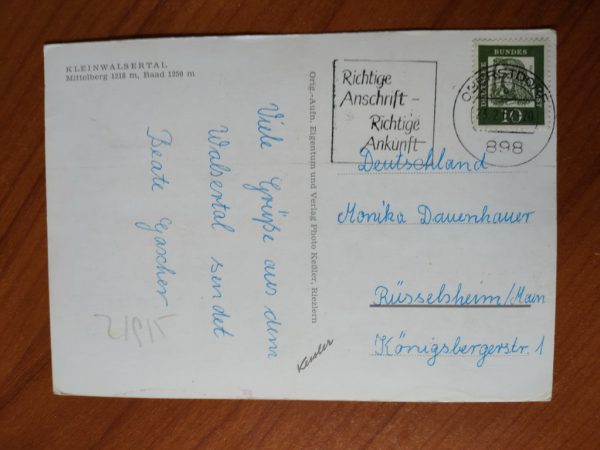 KLEINWALSERTAL
Mittelberg 1218 m, Baad 1250 m
Viele Grüße aus dem
Walsertal sendet
Beate Gascher
Orig.-Aufn. Eigentum und Verlag Photo Keßler, Riezlern
Kessler
Richtige
Anschrift -
Richtige
Ankunft
DEUTSCHE
BUNDES
10
OBERSTDORF
898
Deutschland
Monika Dauenhauer
Rüsselsheim/Main
Königsbergerstr. 1